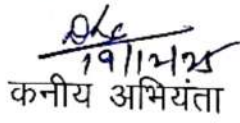 19/12/25
कनीय अभियंता